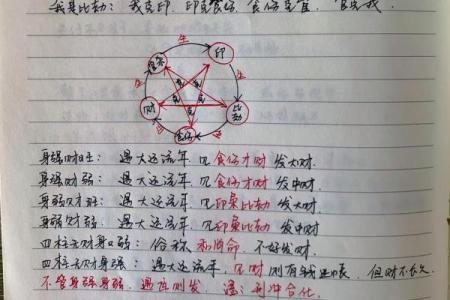 我是比劫：我克印，印克食伤，食伤克官，官克我
生
印
官杀
克
克
克
克
克
财
比劫
食伤
生
身强财旺：遇大运流年，见食伤才财 发大财.
身强财弱：遇大运流年，见食伤才财 发中财.
身弱财旺：遇大运流年，见印枭比劫 发大财.
身弱财弱：遇大运流年，见印枭比劫 发中财
四柱无财身弱：俗称 和尚命，不好发财.
四柱无财身强：遇大运流年，见财则有钱
但财不长久
不管身强身弱，遇
刑冲合化